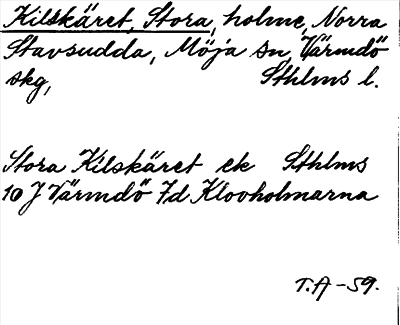 Kilskäret, Stora, holme, Norra
Stavsudda, Möja sn, Värmdö
skg, Sthlms l.
Stora Kilskäret ek Sthlms
10 J Värmdö 7d Klovholmarna
T.A -59.